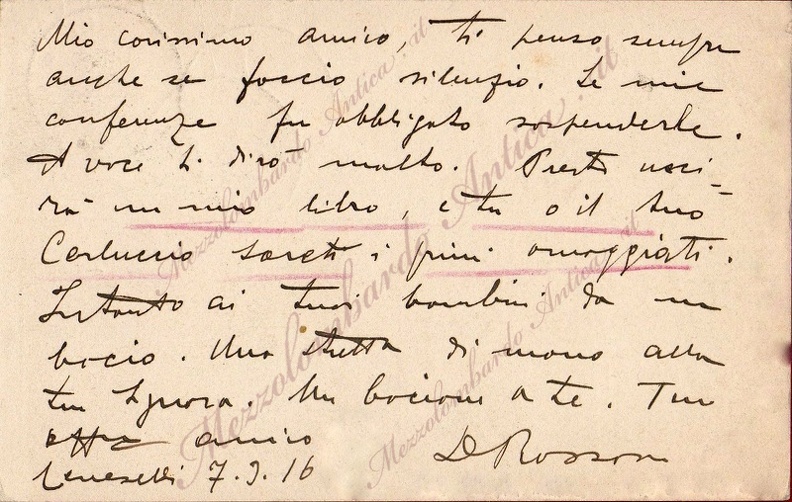 Mio carissimo amico, ti penso sempre
anche se faccio silenzio. Le mie
conferenze fu obbligato sospenderle.
A voce ti dirò molto. Presto usci-
rà un mio libro, e tu o il tuo
Carluccio sarete i primi omaggiati.
Intanto ai tuoi bambini da un
bacio. Una stretta di mano alla
tua Signora. Un bacione a te. Tuo
amico
7.9.16 D Rossoni
Mezzolombardo Antica.it
Mezzolombardo Antica.it
Mezzolombardo Antica.it